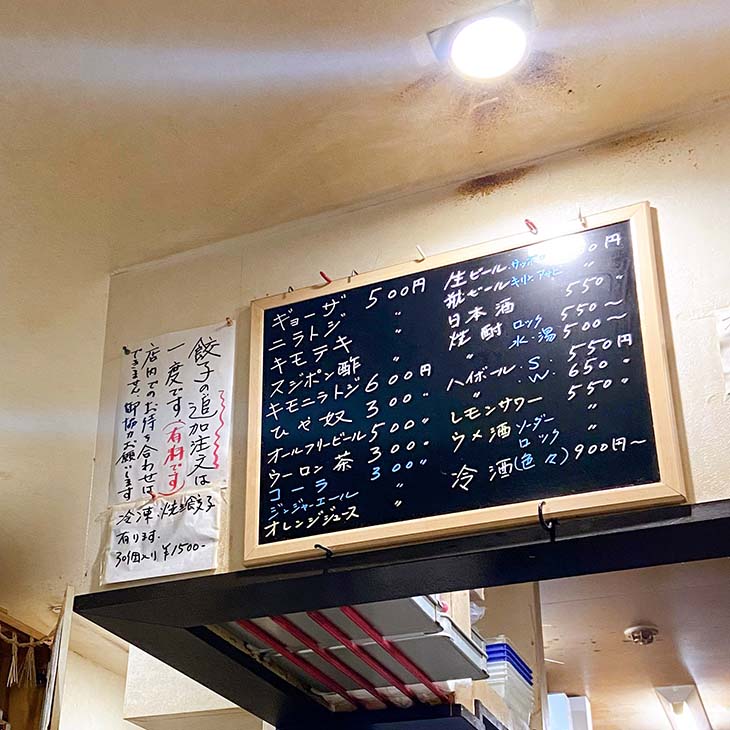 餃子の追加注文は
一度です(有料です)
店内でのお待ち合わせは
できません、御協力お願いします
冷凍・焼餃子
有ります。
30個入り ¥1500-
ギョーザ 500円
ニラトジ 〃
キモテキ 〃
スジポン酢 〃
キモニラトジ 600円
ひや奴 300〃
オールフリービール 500〃
ウーロン茶 300〃
コーラ 300〃
ジンジャーエール 〃
オレンジジュース 〃
生ビール・サッポロ 円
瓶ビール キリン アサヒ 〃
日本酒 550〃
焼酎 ロック 550〜
〃 水・湯 500〜
ハイボール・S. 550円
W. 650〃
レモンサワー 550〃
ウメ酒 ソーダー 〃
ロック 〃
冷酒(色々) 900円〜